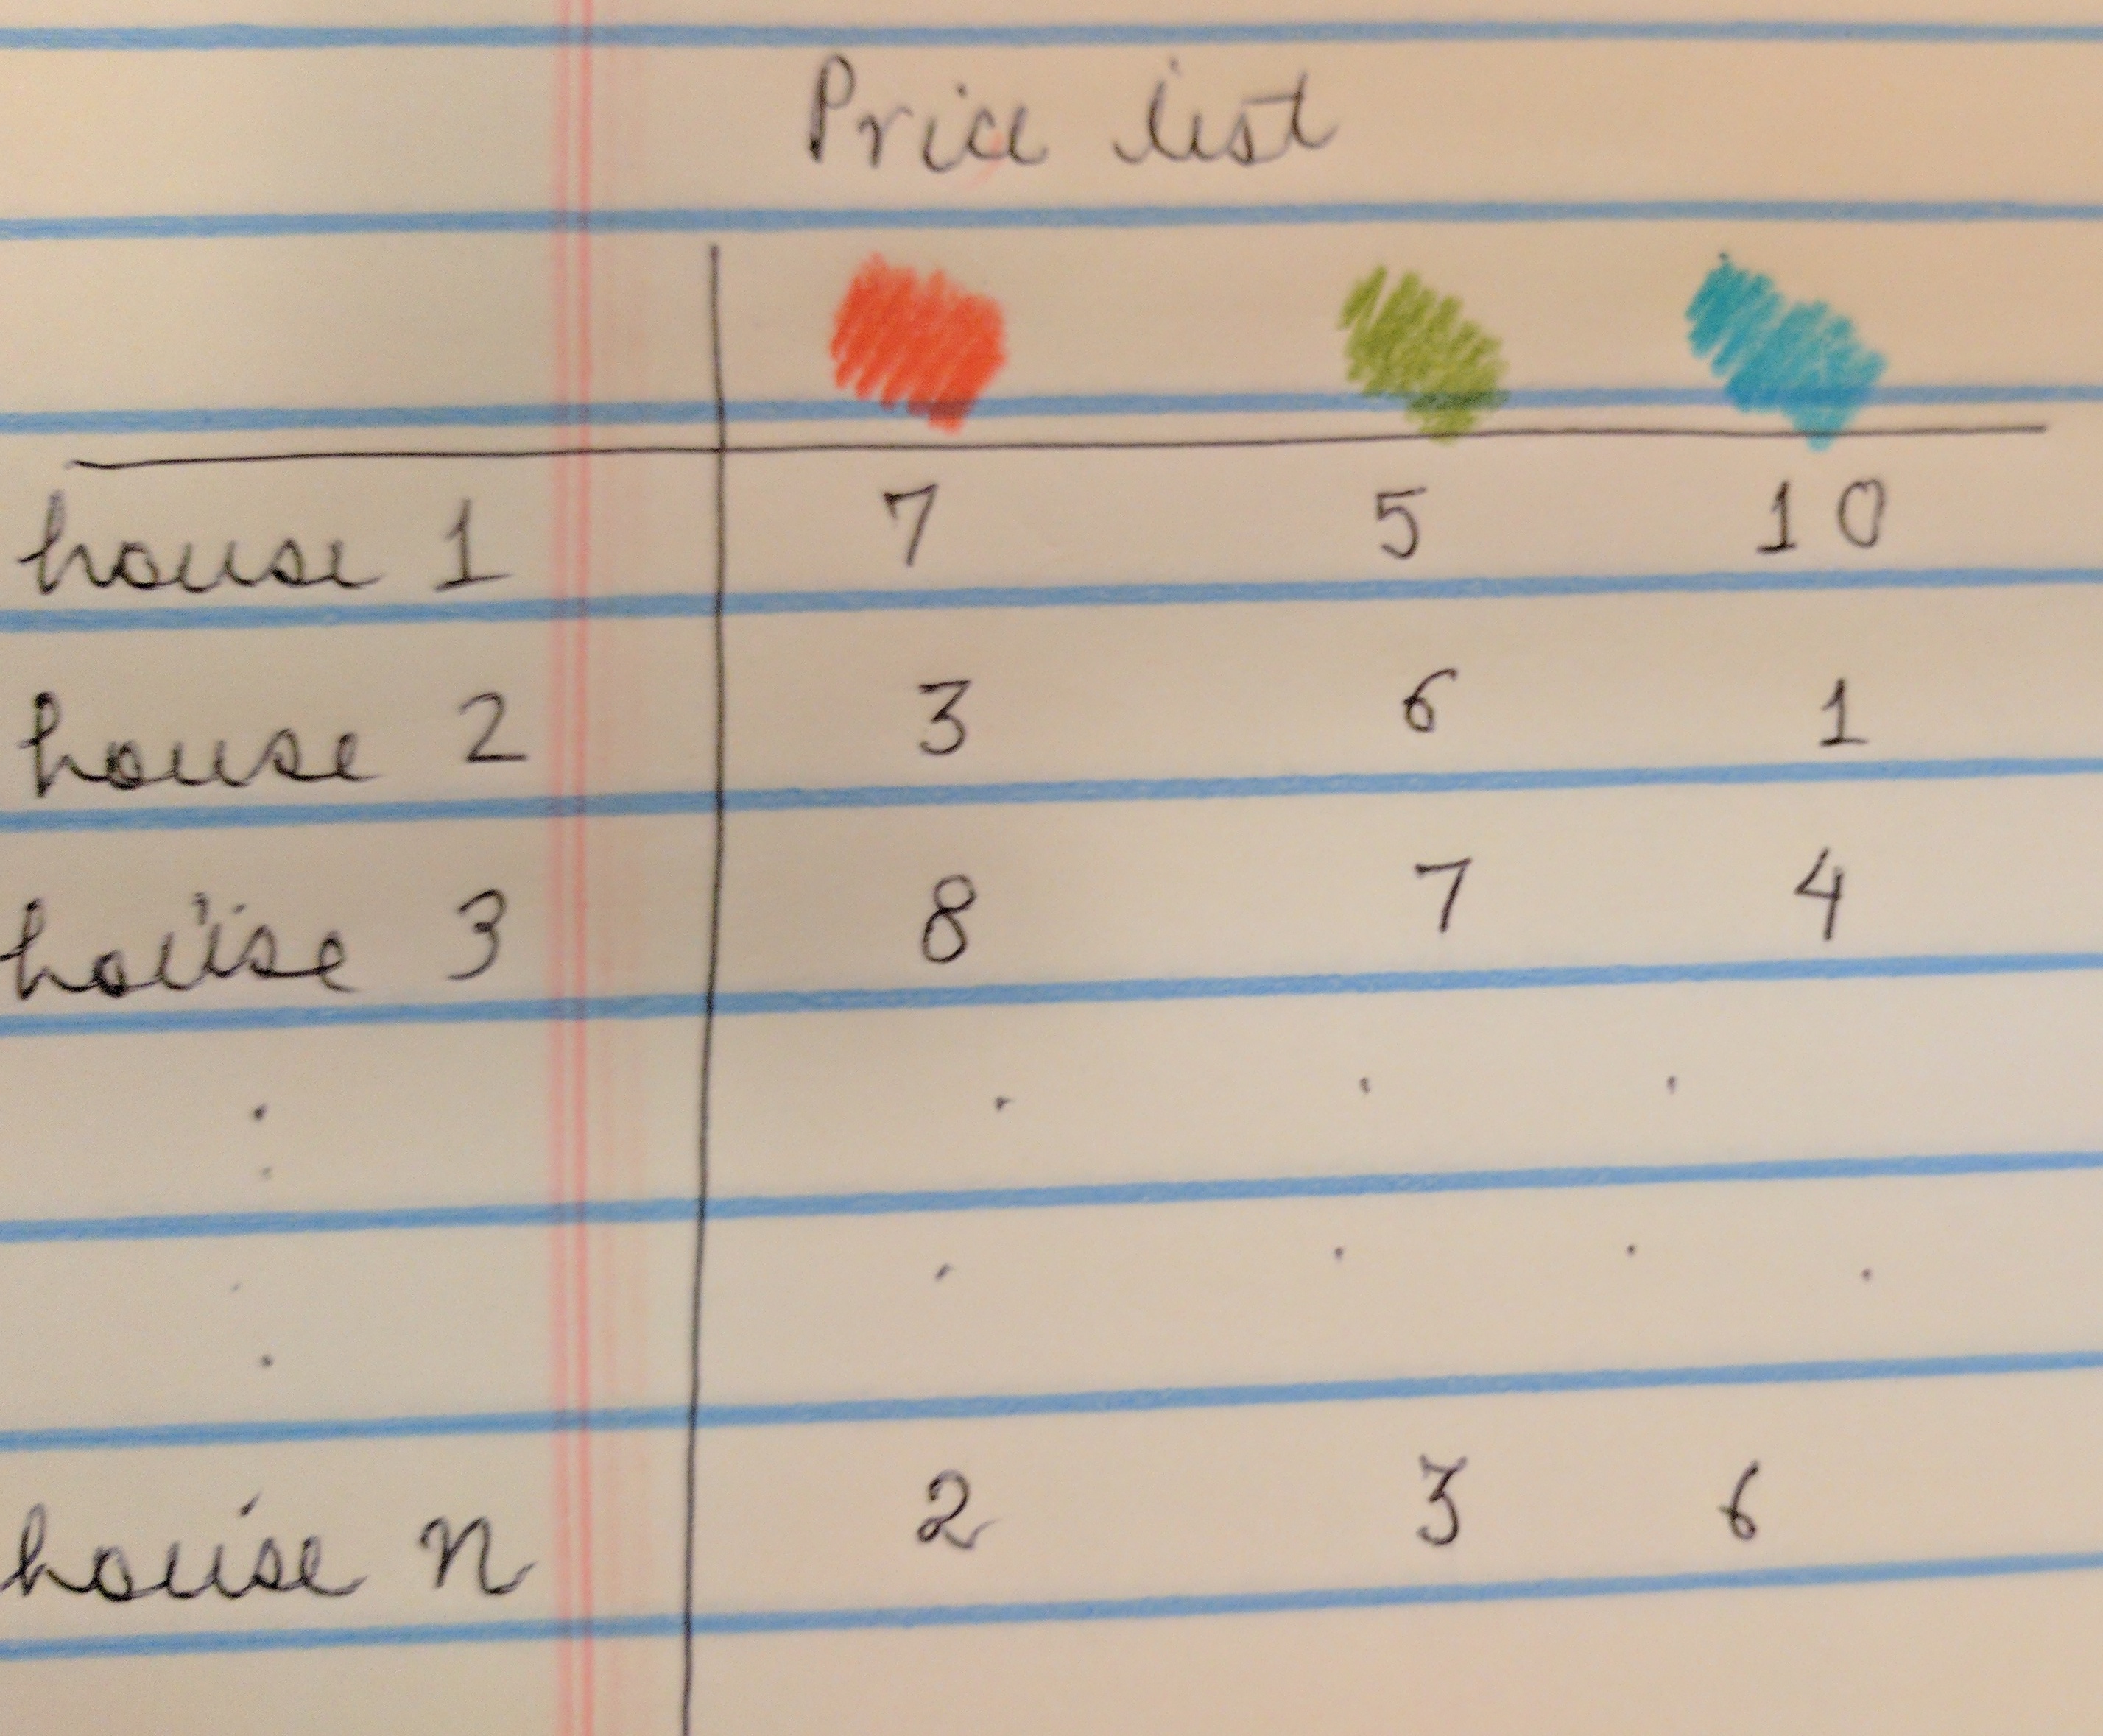 Price list
house 1 7 5 10
house 2 3 6 1
house 3 8 7 4
house n 2 3 6